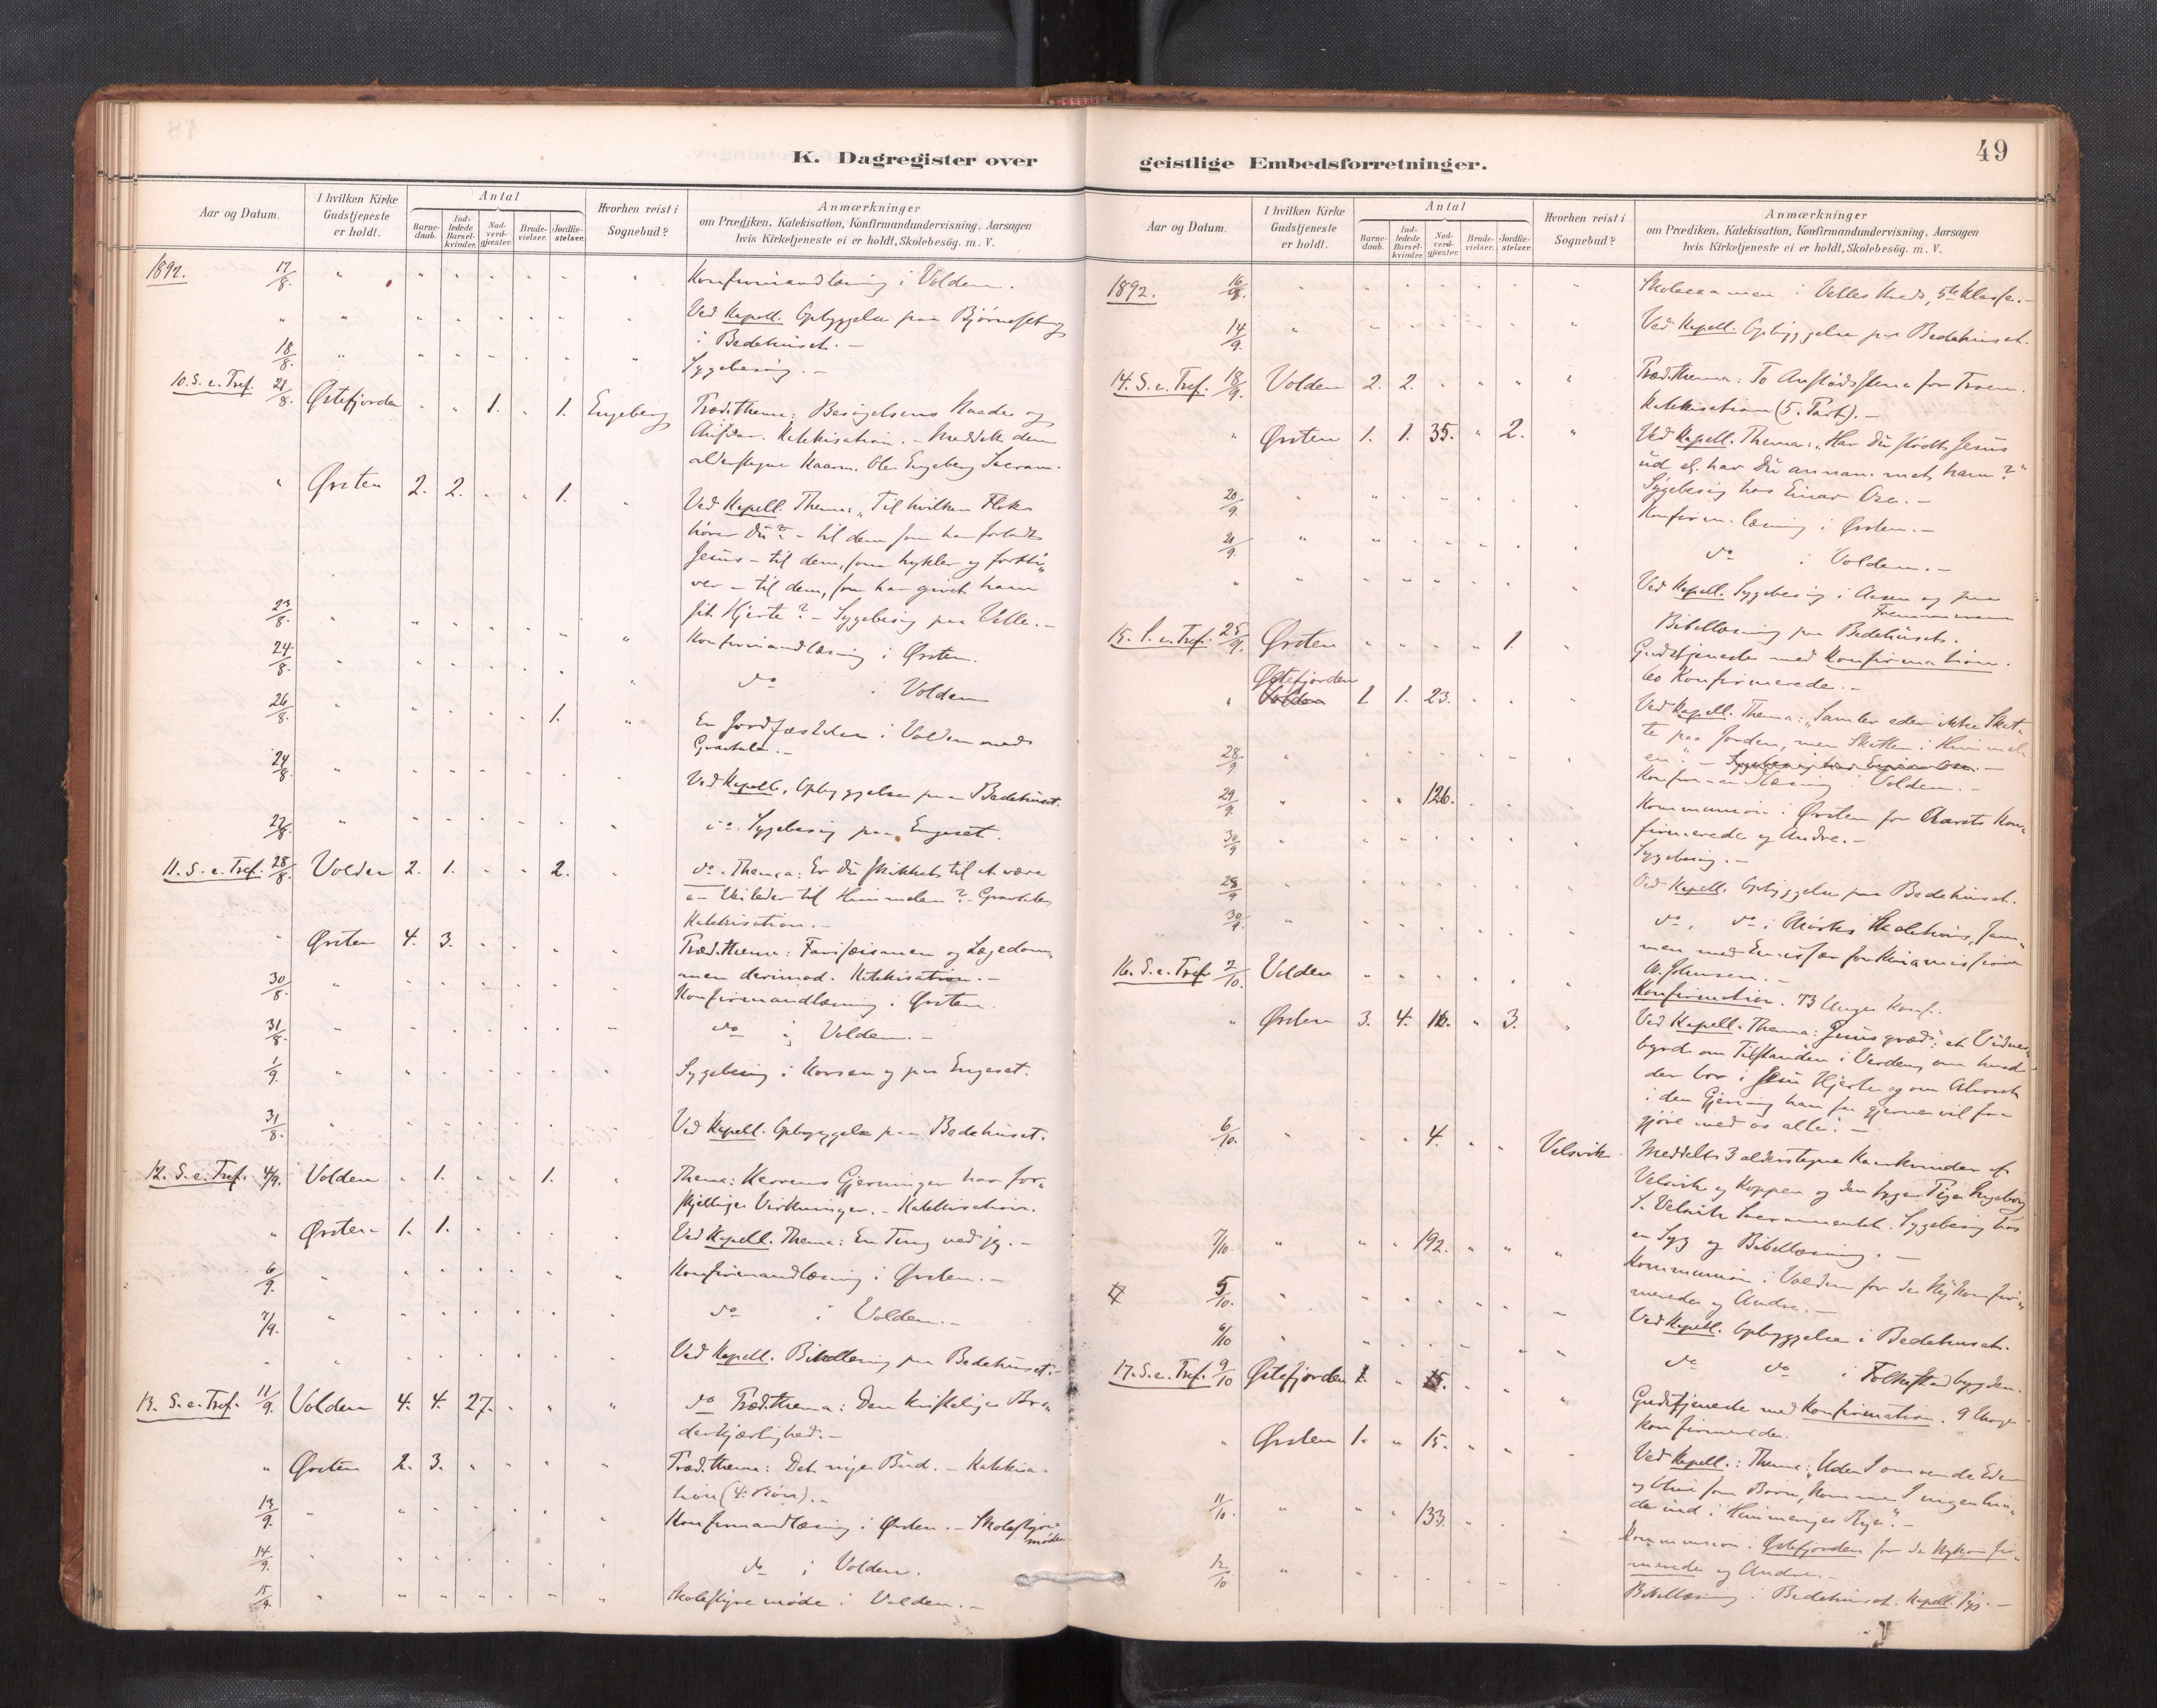 K. Dagregister over
Aar og Datum.
I hvilken Kirke Gudstjeneste er holdt.
Antal
Barnedaab.
Indledede Barselkvinder.
Nadverdgjester.
Brudevielser.
Jordfæstelser.
Hvorhen reist i Sognebud?
Anmærkninger
om Prædiken, Katekisation, Konfirmandundervisning, Aarsagen
hvis Kirketjeneste ei er holdt, Skolebesög. m. V.
1892. 17/8. " " " " " " " Konfirmandlæsning i Volden.
" " " " " " " Ved Kapell. Opbyggelse paa
i Bedehuset. -
18/8. " " " " " " " Sygebesøg. -
10. S. e. Tref. 21/8. Østefjorden " " 1. " 1. Engeberg Præd.thema: Besøgelsens Naade og
Katekisation. - Meddelt den
alderstegne Ole Engeberg Sacram.
" Ørsten 2. 2. " " 1. " Ved Kapell. Thema: "Til hvilken Flok
hører Du?" - til dem som har forladt
Jesus - til dem, som hykler og
ver - til dem, som har givet ham
sit Hjerte? - Sygebesøg paa Velle. -
23/8. " " " " " " " Konfirmandlæsning i Ørsten.
24/8. " " " " " " " do i Volden
26/8. " " " " " 1. " En Jordfæstelse i Volden med
Gravtale. -
24/8. " " " " " " " Ved Kapell. Opbyggelse paa Bedehuset.
27/8. " " " " " " " do. Sygebesøg paa Engeset.
11. S. e. Tref. 28/8. Volden 2. 1. " " 2. " do. Thema: Er Du skikket til at være
en Veileder til Himmelen? - Gravtale,
Katekisation. -
" Ørsten 4. 3. " " " " Præd.thema: Farisæismen og Lægedom-
men derimod. Katekisation. -
30/8. " " " " " " " Konfirmandlæsning i Ørsten.
31/8. " " " " " " " do i Volden. -
1/9. " " " " " " " Sygebesøg i og paa Engeset.
31/8. " " " " " " " Ved Kapell. Opbyggelse paa Bedehuset.
12. S. e. Tref. 4/9. Volden " 1. " " 1. " Thema: Herrens Gjerninger har for-
skjellige Virkninger. - Katekisation.
" Ørsten 1. 1. " " " " Ved Kapell. Thema: En Ting ved jeg. -
6/9. " " " " " " " Konfirmandlæsning i Ørsten. -
7/9. " " " " " " " do i Volden. -
" " " " " " " Ved Kapell. Bibellæsning paa Bedehuset. -
13. S. e. Tref. 11/9. Volden 4. 4. 27. " " " do Præd.thema: Den kristelige Bro-
derkjærlighed. -
" Ørsten 2. 3. " " " " Præd.thema: Det nye Bud. - Katekisa-
tion (4. Bøn). -
13/9. " " " " " " " Konfirmandlæsning i Ørsten. - Skolestyre-
møde.
14/9. " " " " " " " do i Volden.
15/9. " " " " " " " Skolestyremøde i Volden. -
geistlige Embedsforretninger.
49
Aar og Datum.
I hvilken Kirke Gudstjeneste er holdt.
Antal
Barnedaab.
Indledede Barselkvinder.
Nadverdgjester.
Brudevielser.
Jordfæstelser.
Hvorhen reist i Sognebud?
Anmærkninger
om Prædiken, Katekisation, Konfirmandundervisning, Aarsagen
hvis Kirketjeneste ei er holdt, Skolebesög. m. V.
1892. 16/9. " " " " " " " Skoleexamen i Velles Kreds, 5te Klasse. -
14/9. " " " " " " " Ved Kapell. Opbyggelse paa Bedehuset.
14. S. e. Tref. 18/9. Volden 2. 2. " " " " Præd.thema: To Anstødsstene for Troen.
Katekisation (5. Part). -
" Ørsten 1. 1. 35. " 2. " Ved Kapell. Thema: "Har Du stødt Jesus
ud el. har Du annammet ham?"
Sygebesøg hos Einar Ose. -
20/9. " " " " " " " Konfirm. læsning i Ørsten. -
21/9. " " " " " " " do i Volden. -
" " " " " " " Ved Kapell. Sygebesøg i Aasen og paa
Bibellæsning paa Bedehuset.
15. S. e. Tref. 25/9. Ørsten " " " " 1. " Gudstjeneste med Konfirmation.
60 Konfirmerede. -
" Østefjorden Volden 1. 1. 23. " " " Ved Kapell. Thema: "Samler eder ikke Skat-
te paa Jorden, men Skatten i Himmel-
en". -
28/9. " " " " " " " Konfirmandlæsning i Volden. -
29/9. " " " 126. " " " Kommunion i Ørsten for Aarets Kon-
firmerede og Andre. -
30/9 " " " " " " " Sygebesøg. -
28/9 " " " " " " " Ved Kapell. Opbyggelse paa Bedehuset.
30/9. " " " " " " " do, do i Skolehus, sam-
men med Emissær for Kinamission
O. Johnsen. -
16. S. e. Tref. 2/10. Volden " " " " " " Konfirmation. 73 Unge Konf.
" Ørsten 3. 4. 16. " 3. " Ved Kapell. Thema: "Jesus græd"; et Vidnes-
byrd om Tilstanden i Verden, om hvad
der bor i Jesu Hjerte og om Alvoret
i den Gjerning han saa gjerne vil faa
gjøre med os alle. -
6/10. " " " 4. " " Velsvik Meddelt 3 alderstegne Kvinder af
Velsvik og Koppen og den syge Pige Ingeborg
S. Velsvik Sacramentet. Sygebesøg hos
en Syg og Bibellæsning. -
7/10. " " " 192. " " " Kommunion i Volden for de Nykonfir-
merede og Andre. -
5/10. " " " " " " " Ved Kapell. Opbyggelse i Bedehuset.
6/10 " " " " " " " do do i Folkestadbygden.
17. S. e. Tref. 9/10 Østefjorden 1. " 15. " " " Gudstjeneste med Konfirmation. 9 Unge
konfirmerede.
" Ørsten 1. " 15. " " " Ved Kapell.: Thema: "Uden I omvende Eder
og blive som Børn, komme I ingenlun-
de ind i Himmeriges Rige". -
11/10. " " " 133. " " " Kommunion i Østefjorden for de Nykonfir-
merede og Andre. -
12/10 " " " " " " " Bibellæsning i Bedehuset. Kapell. syg. -